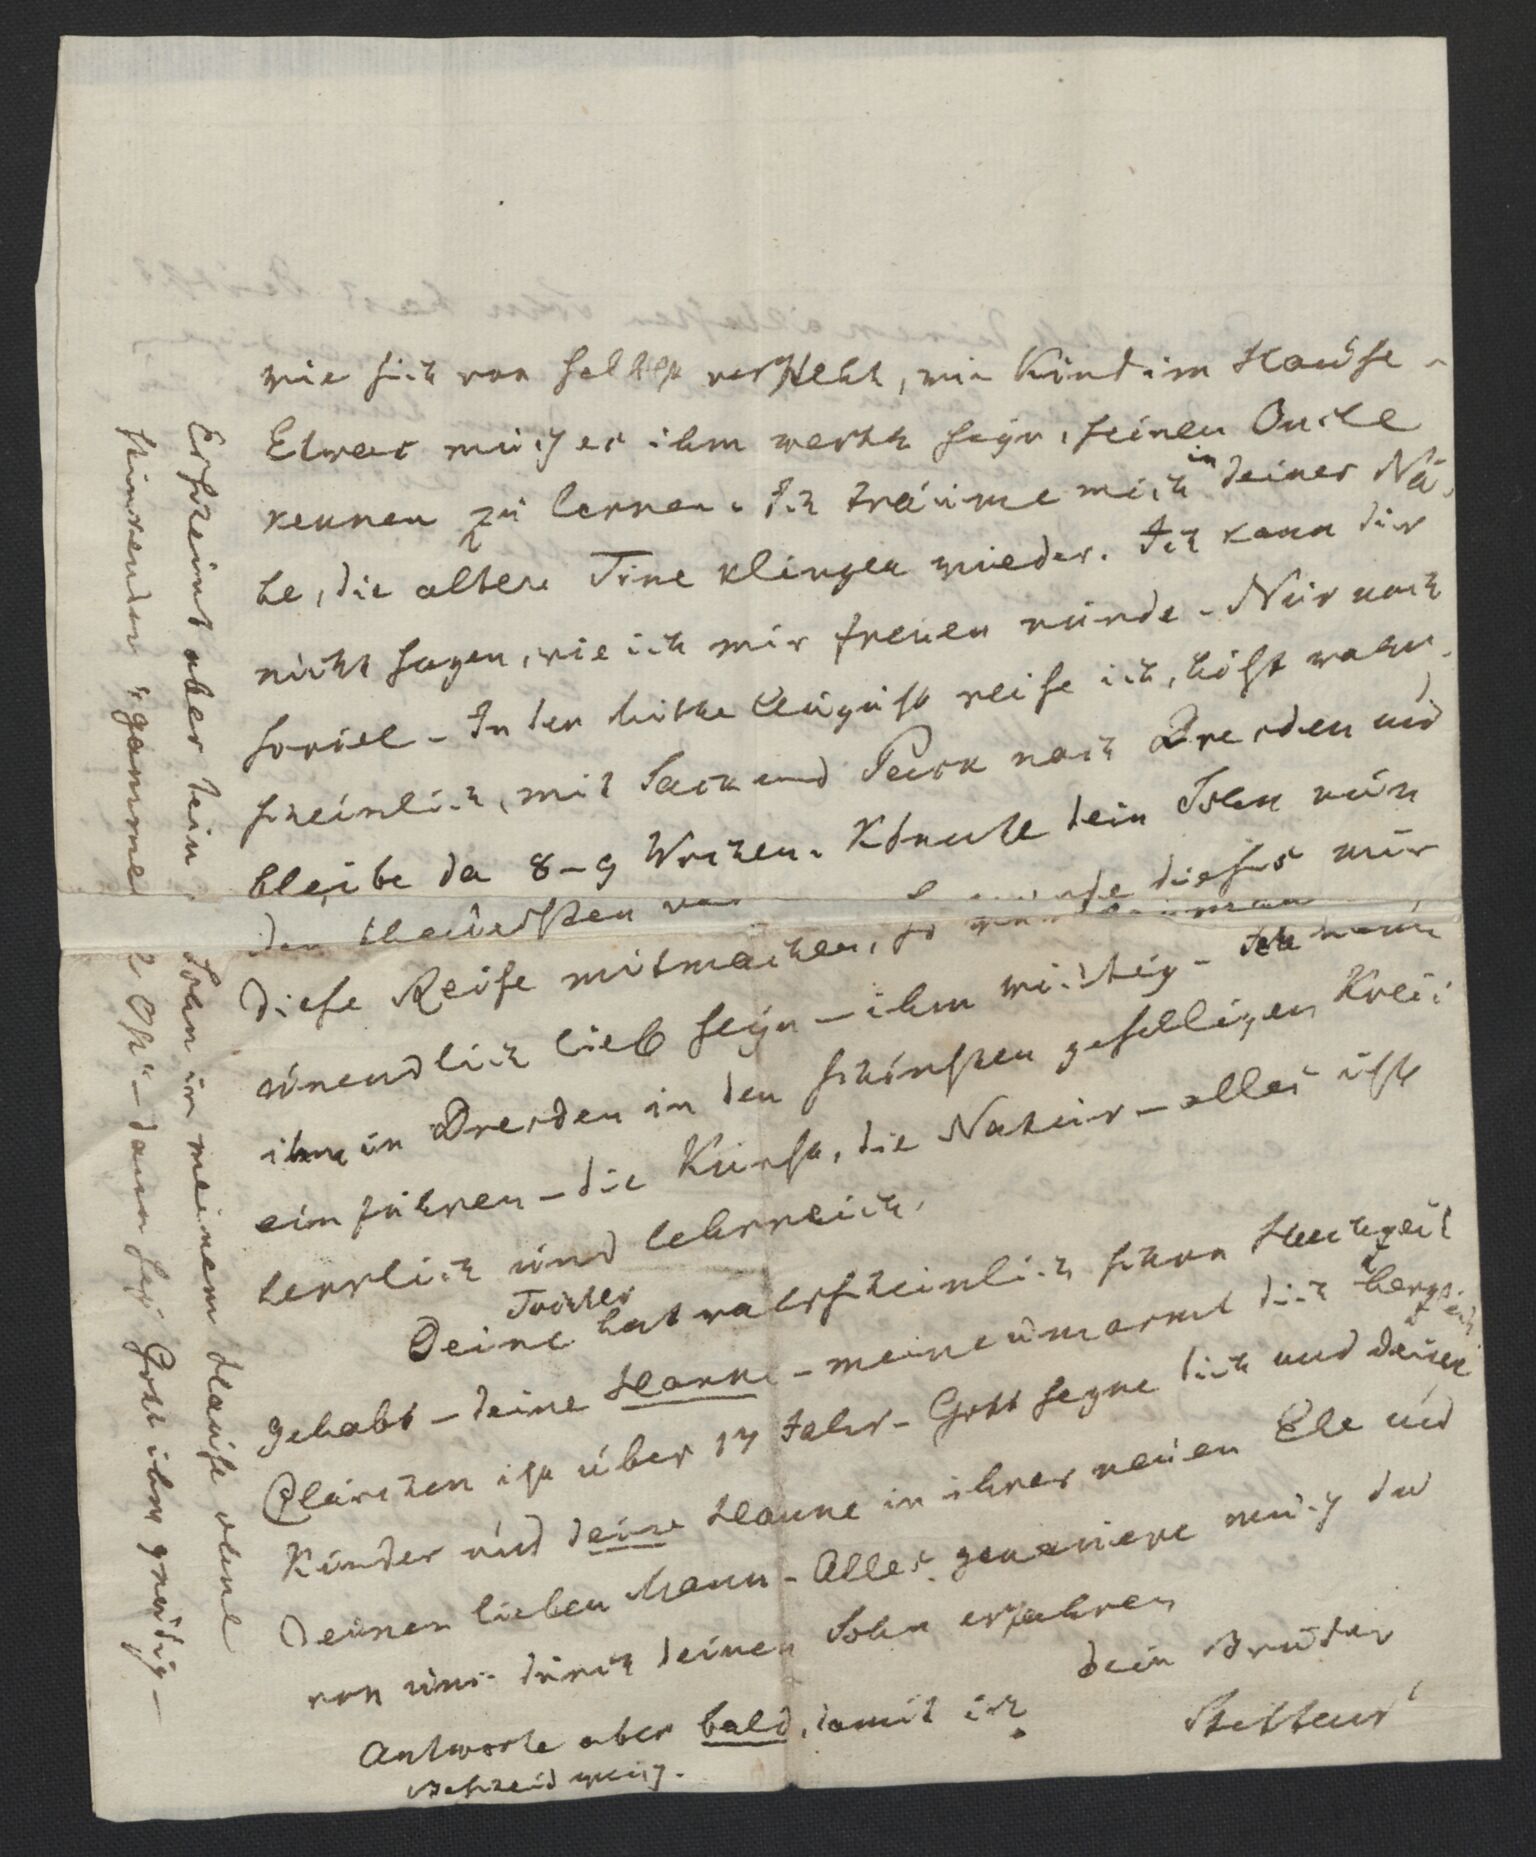 wie sich von selbst versteht, wie Kind im Hause –
Etwas muß es ihm werth seyn, seinen Oncle
kennen zu lernen. Ich träume mich in deiner Nä-
he, die alten Töne klingen wieder. Ich kann dir
nicht sagen, wie ich mir freuen würde – Nur noch
soviel – In der Mitte August reise ich, höchst wahr-
scheinlich, mit Sack und Pack nach Dresden und
bleibe da 8–9 Wochen. Könnte dein Sohn nun
diese Reise mitmachen, so würde dieses mir
unendlich lieb seyn – ihm wichtig – Ich kann
ihn in Dresden in den schönsten geselligen Kreis
einführen – die Kunst, die Natur – alles ist
herrlich und lehrreich.
Deine Tochter hat wahrscheinlich schon Hochzeit
gehabt – deine Hanne – meine umarmt dich herzlich
Clärchen ist über 17 Jahr – Gott segne dich und deine
Kinder und deine Hanne in ihrer neuen Ehe und
deinen lieben Mann – Alles genauere mußt du
von uns durch deinen Sohn erfahren
dein Bruder
Steffens
Antworte aber bald, damit ich
Bescheid weiß.
Erscheint aber dein Sohn in meinem Hause ohne
– dann sey Gott ihm gnädig –